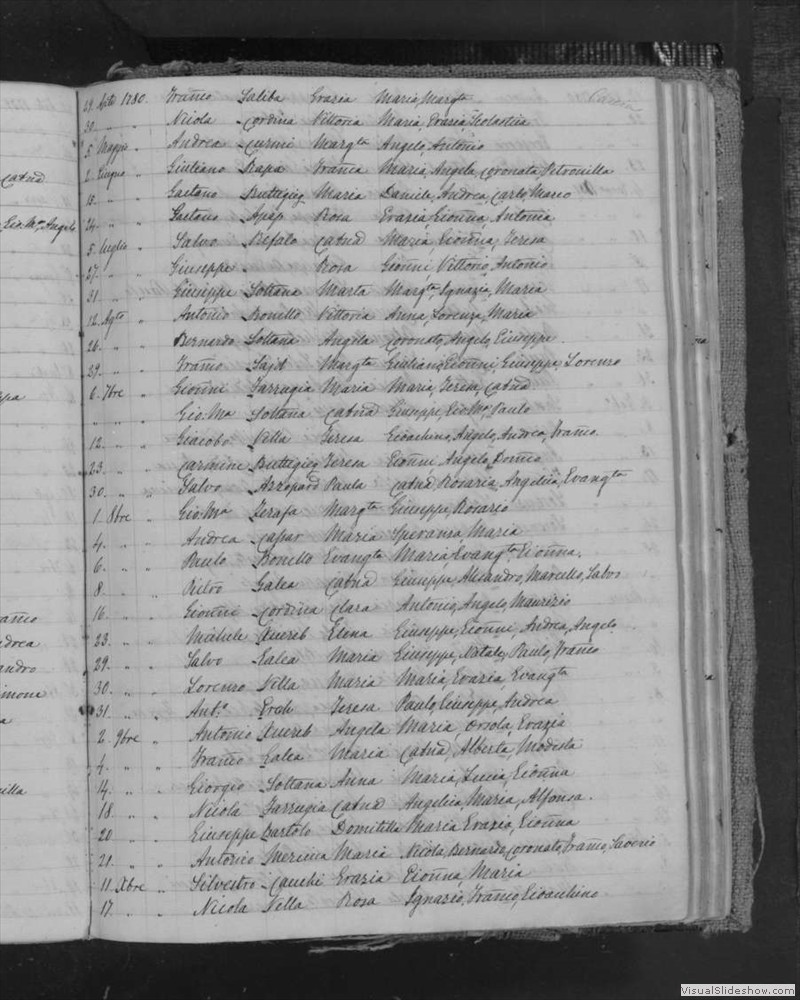 29. Lulio 1780. Franco Saliba Grazia Maria, Margta
30. " " Nicola Cordina Vittoria Maria, Grazia, Scolastica
5. Maggio " Andrea Curmi Margta Angelo, Antonio
2. Giugno " Giuliano Rapa Franca Maria, Angela, Coronata, Petronilla
18. " " Gaetano Buttigieg Maria Daniele, Andrea, Carlo, Marco
24. " " Gaetano Apap Rosa Grazia, Gionna, Antonia
5. Luglio " Salvo Bezfalo Catna Maria, Gionna, Teresa
27. " " Giuseppe " Rosa Gionni Vittorio, Antonio
31. " " Giuseppe Soltana Marta Margta, Ignazia, Maria
12. Agto " Antonio Bonello Vittoria Anna, Lorenza, Maria
26. " " Bernardo Soltana Angela Coronato, Angelo, Giuseppe.
29. " " Franco Sajd Margta Giuliano, Gionni, Giuseppe, Lorenzo
6. 7bre " Gionni Farrugia Maria Maria, Teresa, Catna
" " " Gio: Ma Soltana Catna Giuseppe, Gio Ma, Paulo
12. " " Giacobo Vella Teresa Gioachino, Angelo, Andrea, Franco.
23. " " Carmine Buttigieg Teresa Gionni, Angelo, Domco
30. " " Salvo Azzopard Paula Catna, Rosaria, Angelica, Evangta
1. 8bre " Gio: Ma Zerafa Margta Giuseppe, Rosario
4. " " Andrea Capar Maria Speranza, Maria
6. " " Paulo Bonello Evangta Maria, Evangta, Gionna.
8. " " Pietro Galea Catna Giuseppe, Alesandro, Marcello, Salvo
16. " " Gionni Cordina Clara Antonio, Angelo, Maurizio
23. " " Michele Xuereb Elena Giuseppe, Gionni, Andrea, Angelo.
29. " " Salvo Galea Maria Giuseppe, Natale, Paulo, Franco
30. " " Lorenzo Vella Maria Maria, Grazia, Evangta
31. " " Anto Grech Teresa Paulo, Giuseppe, Andrea
2. 9bre " Antonio Xuereb Angela Maria, Orsola, Grazia
4. " " Franco Galea Maria Catna, Alberta, Modesta
14. " " Giorgio Soltana Anna Maria, Lucia, Gionna
18. " " Nicola Farrugia Catna Angelica, Maria, Alfonsa.
20. " " Giuseppe Bartolo Domitilla Maria Grazia, Gionna
21. " " Antonio Mercieca Maria Nicola, Bernardo, Coronato, Franco, Saverio
11. Xbre " Silvestro Cauchi Grazia Gionna, Maria
17. " " Nicola Vella Rosa Ignazio, Franco, Gioachino